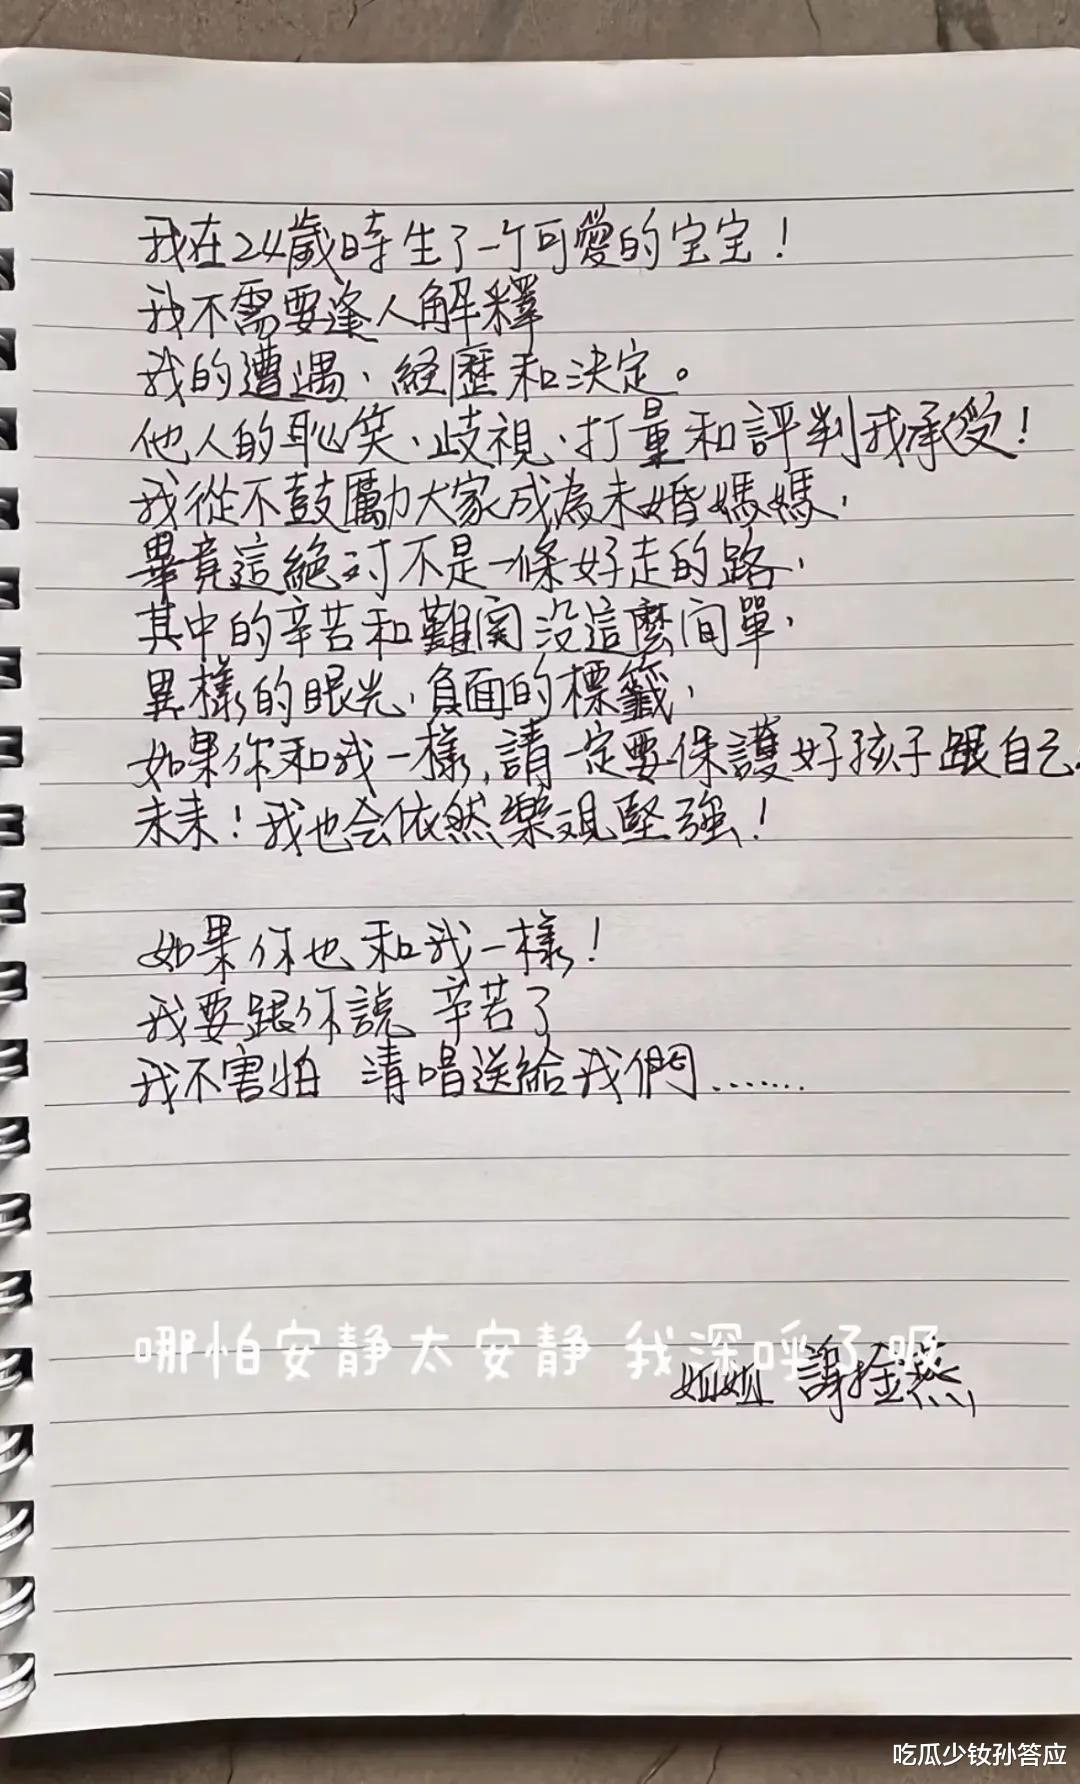 我在24歲時生了一个可愛的宝宝！
我不需要逢人解釋
我的遭遇、経歷和決定。
他人的恥笑、歧視、打量和評判我承受！
我從不鼓勵大家成為未婚媽媽，
畢竟這絕对不是一條好走的路，
其中的辛苦和難関没這麼简單，
異樣的眼光、負面的標籤，
如果你和我一樣，請一定要保護好孩子跟自己。
未来！我也会依然樂观堅強！
如果你也和我一樣！
我要跟你説 辛苦了
我不害怕 清唱送給我們.......
哪怕安静太安静 我深呼了吸
姐姐 謝金燕
吃瓜少钕孙答应